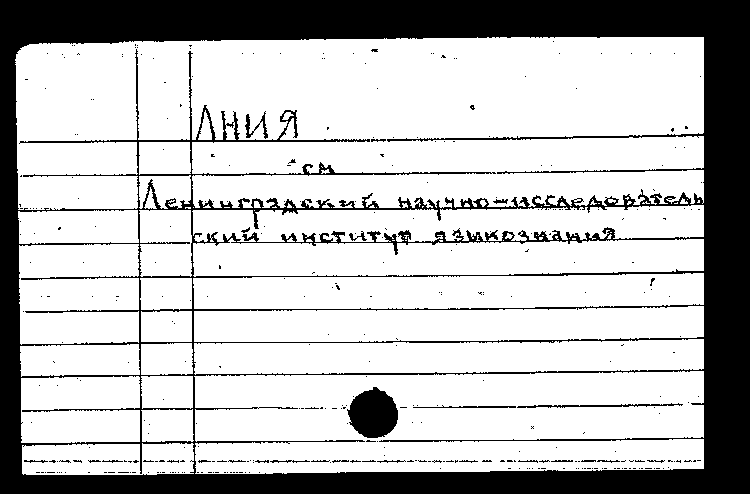 ЛНИЯ
см
Ленинградский научно-исследователь
ский институт языкознания